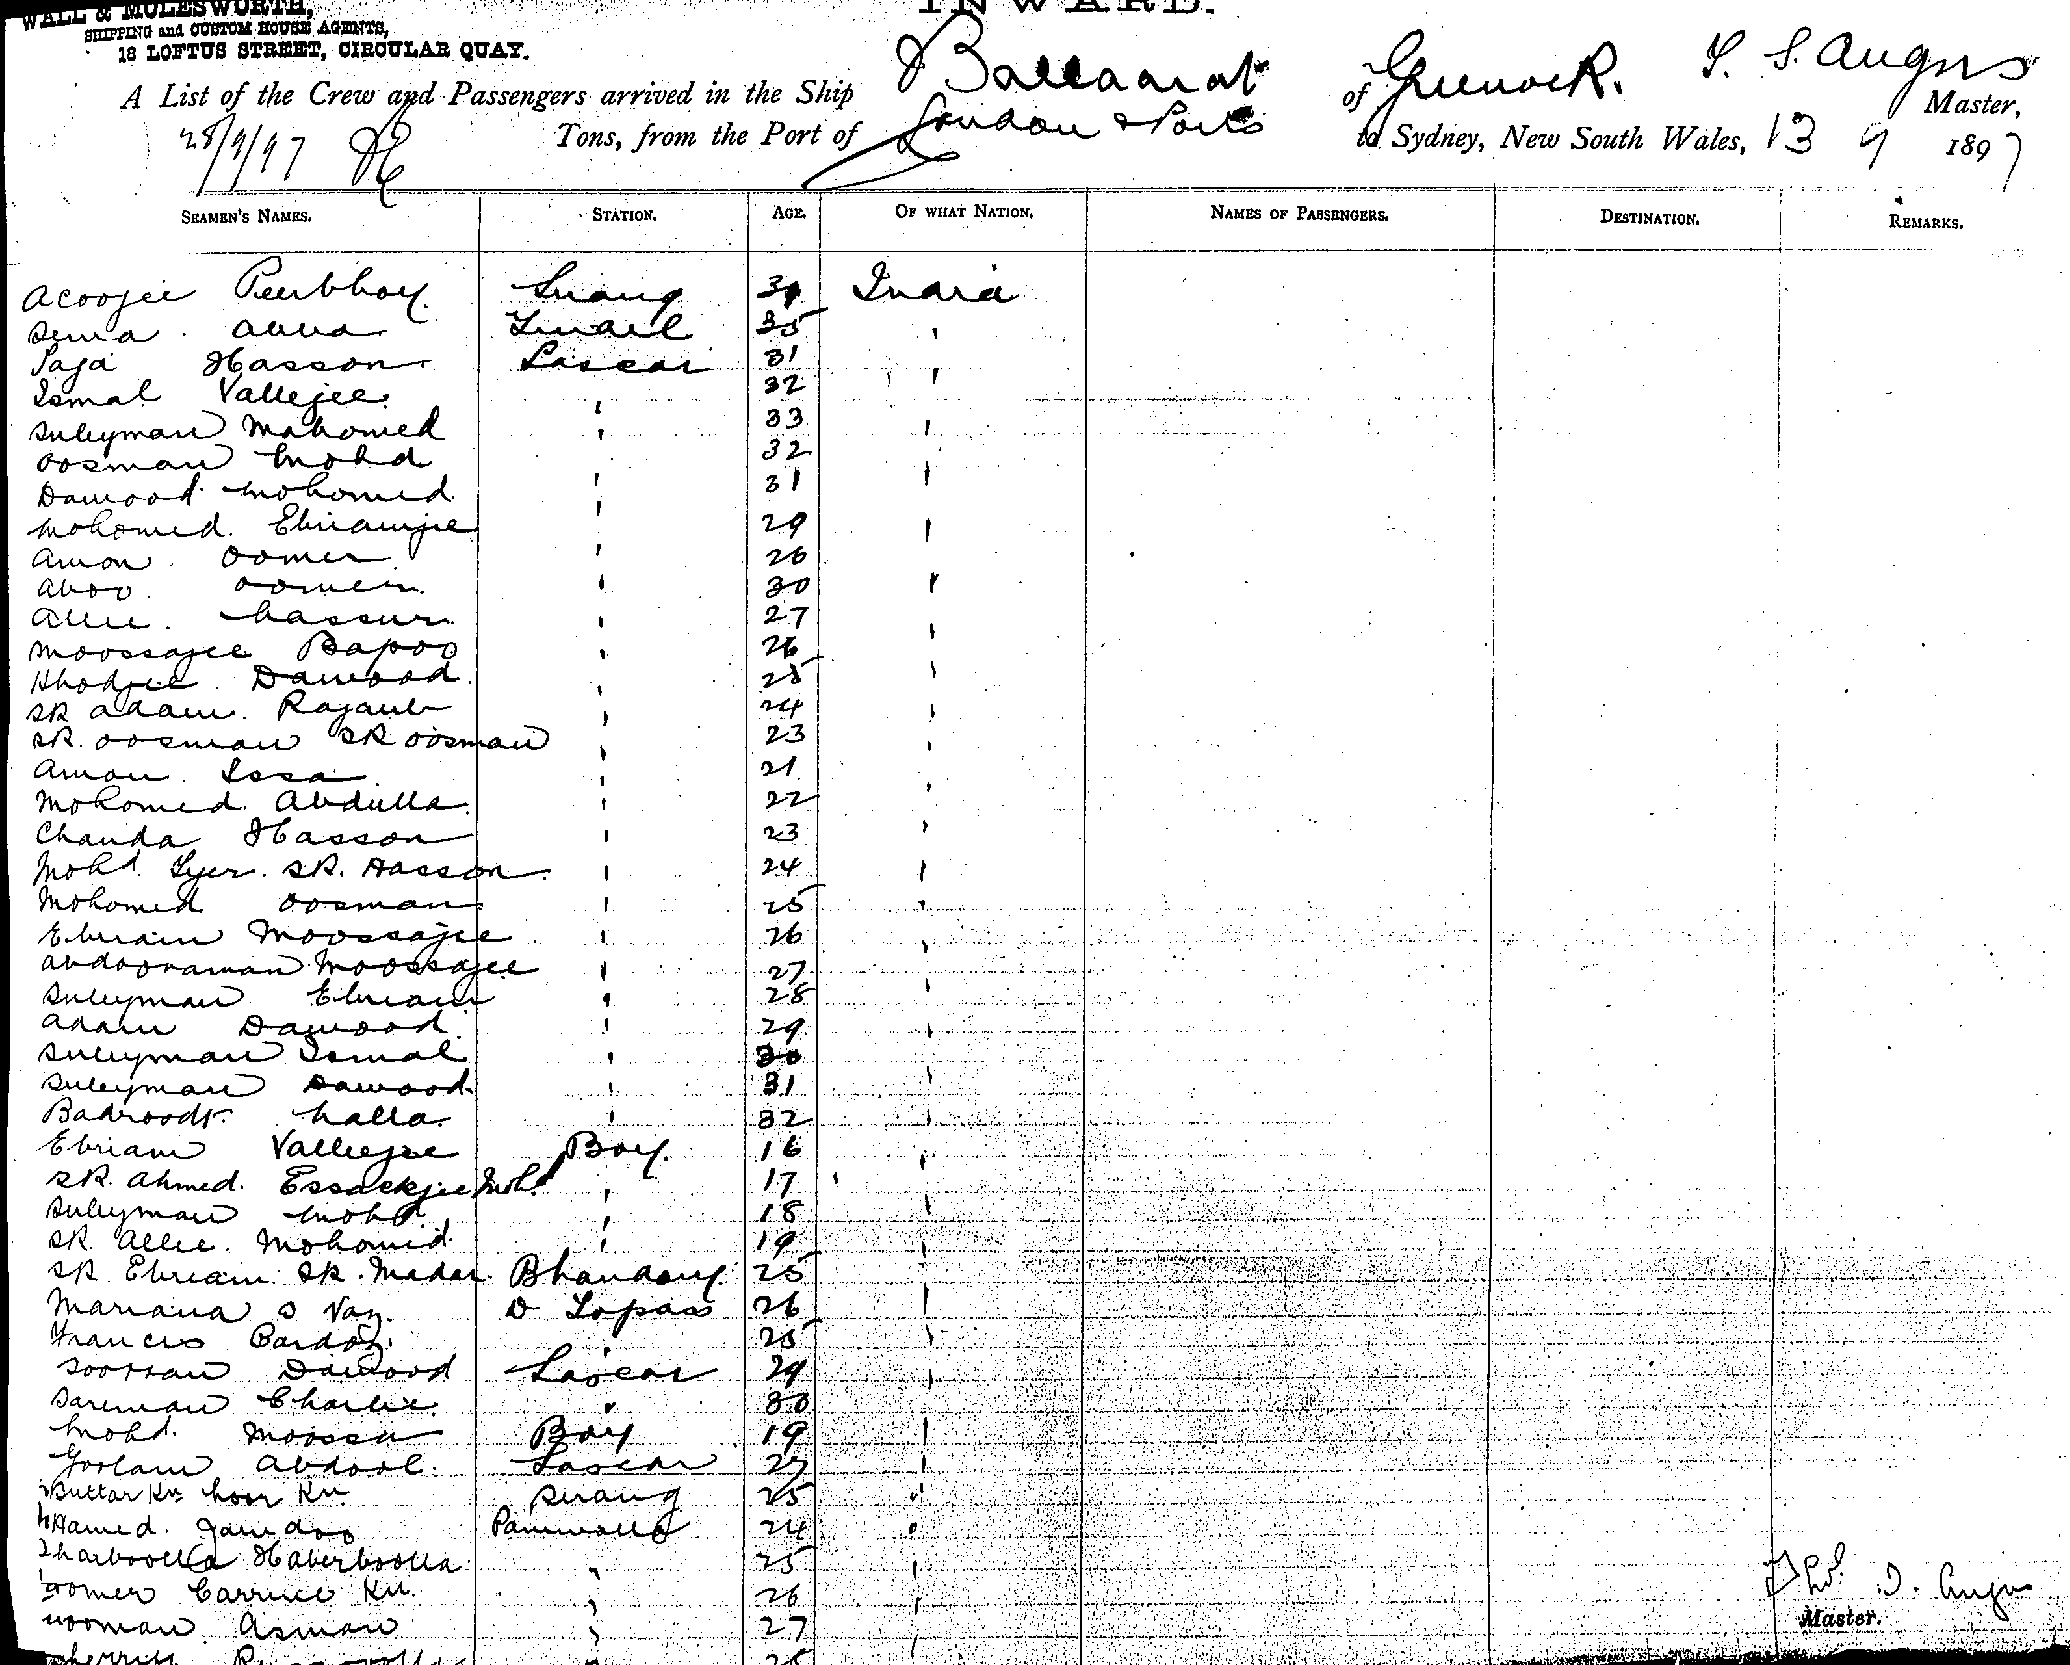 WALL & MOLESWORTH,
SHIPPING and CUSTOM HOUSE AGENTS,
18 LOFTUS STREET, CIRCULAR QUAY.
INWARD.
A List of the Crew and Passengers arrived in the Ship Ballaarat of Greenock. T. S. Angus Master,
28/9/97 Tons, from the Port of London & Ports to Sydney, New South Wales, 13 9 1897
SEAMEN'S NAMES. STATION. AGE. OF WHAT NATION. NAMES OF PASSENGERS. DESTINATION. REMARKS.
Acoojee Peerbhoy. Srang 39 India
35
Hasson Lascar 31
Ismal Vallejee 32
Suleyman Mahomed 33
Oosman Mohd 32
Dawood Mohomed 31
Mohomed. Ebriamjee 29
Amon Oomer 26
Aboo. Oomer 30
Allie. hassun 27
Moossajee Bapoo 26
Khodjee. Dawood 25
SK Adam. Rajaub 24
SK. Oosman SK Oosman 23
Amon. Issa 21
Mohomed. Abdulla 22
Chanda Hasson 23
Mohd. SK. Hasson 24
Mohomed Oosman 25
Ebriam Moossajee 26
Abdooraman Moossajee 27
Suleyman Ebriam 28
Adam Dawood 29
Suleyman Ismal 30
Suleyman Dawood 31
Badroodt. halla. 32
Ebriam Vallejee Boy. 16
SK. Ahmed. Essackjee Mohd 17
Suleyman Mohd 18
SK. Allie. Mohomed 19
SK Ebriam SK. Madar Bhandary. 25
Mariana D Vaz. D Topass 26
Francis Cardoz. 25
Dawood Lascar 29
Sareman Charlie 30
Mohd. Moossa Boy 19
Goolam Abdool. Lascar 27
Buttar Kn. hoor Kn. Serang 25
Hamed. Jamdoo Paniwalla 24
Haberboolla 25
Oomer Carrine Kn. 26
Nooman. Asman 27
Thos. S. Angus
Master.